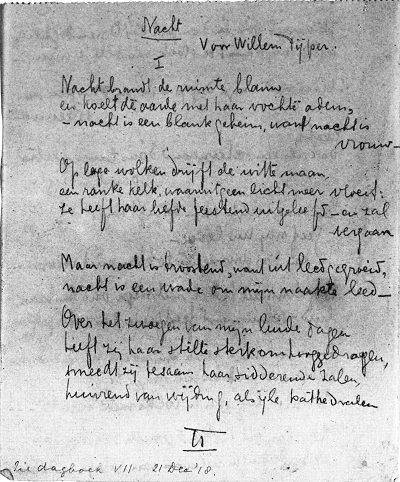 Nacht
Voor Willem Pijper.
I
Nacht brandt de ruimte blauw
en koelt de aarde met haar vochte adem,
– nacht is een blank geheim, want nacht is
vrouw –
Op lage wolken drijft de witte maan,
een ranke kelk, waaruit geen licht meer vloeit:
Ze heeft haar liefde feestend uitgeleefd – en zal
vergaan
Maar nacht is troostend, want uit leed gegroeid,
nacht is een wade om mijn naakte leed –
Over het zwoegen van mijn luide dagen
heeft zij haar stilte sterk omhooggedragen,
smeedt zij tesaam haar sidderende zalen,
huiverend van wijding, als ijle kathedralen
Zie dagboek VII 21 Dec '18.